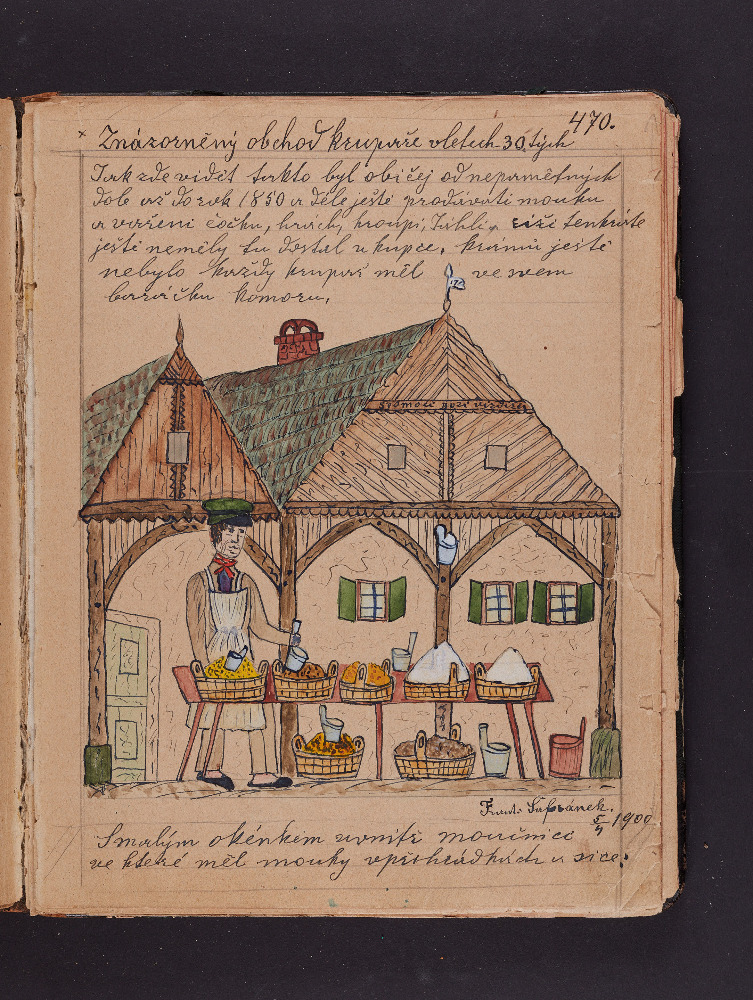 470.
× Znázorněný obchod krupaře vletech 30tých
Jak zde vidět takto byl običej od nepamětných
dob až do rok 1850 a déle ještě prodávati mouku
a vaření čočku, hrách, kroupi, Jáhli, riži tenkráte
ještě neměly tu dostal u kupce, krámů ještě
nebylo každy krupař měl ve svem
baráčku komoru,
Frant. Šafránek.
5/4 1900
Smalým okénkem uvnitř moučnici
ve které měl mouky vpřihrádkách a sice: